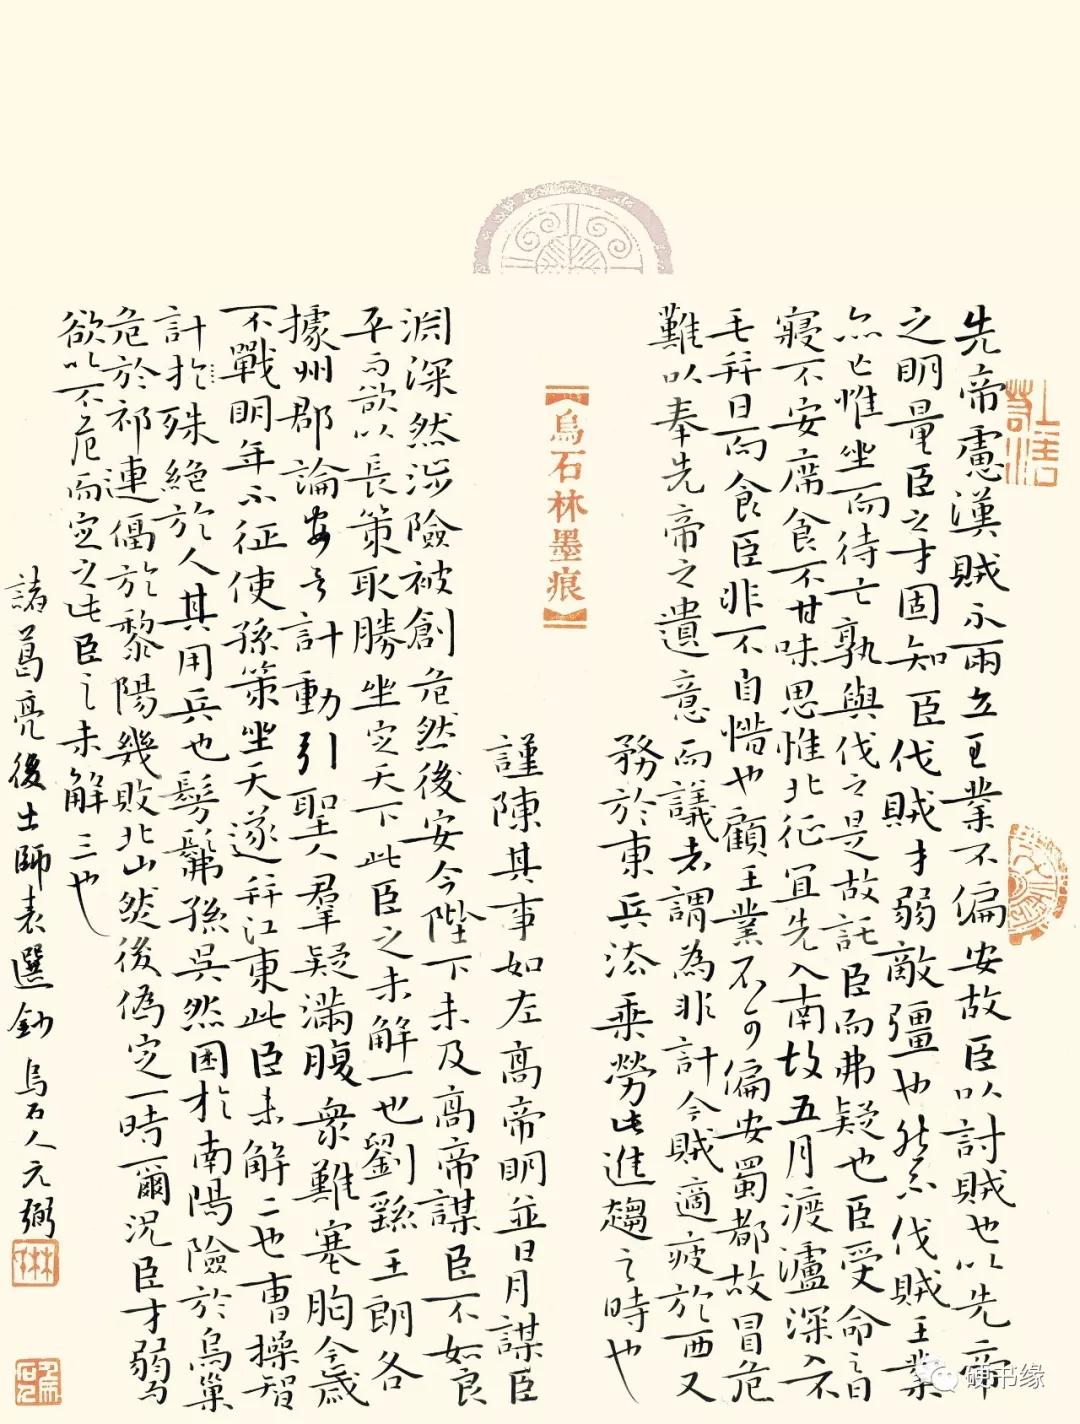 先帝慮漢賊不兩立王業不偏安故臣以討賊也以先帝
之明量臣之才固知臣伐賊才弱敵彊也然不伐賊王業
亦亡惟坐而待亡孰與伐之是故託臣而弗疑也臣受命之日
寢不安席食不甘味思惟北征宜先入南故五月渡瀘深入不
毛并日而食臣非不自惜也顧王業不可偏安蜀都故冒危
難以奉先帝之遺意而議者謂為非計今賊適疲於西又
務於東兵法乘勞此進趨之時也
【烏石林墨痕】
謹陳其事如左高帝明並日月謀臣
淵深然涉險被創危然後安今陛下未及高帝謀臣不如良
平而欲以長策取勝坐定天下此臣之未解一也劉繇王朗各
據州郡論安言計動引聖人羣疑滿腹衆難塞胸今歲
不戰明年不征使孫策坐大遂并江東此臣未解二也曹操智
計於殊絕於人其用兵也髣髴孫吳然困於南陽險於烏巢
危於祁連偪於黎陽幾敗北山然後偽定一時爾況臣才弱
欲以不危而定之此臣之未解三也
諸葛亮後出師表選鈔 烏石人元弼
硬书缘